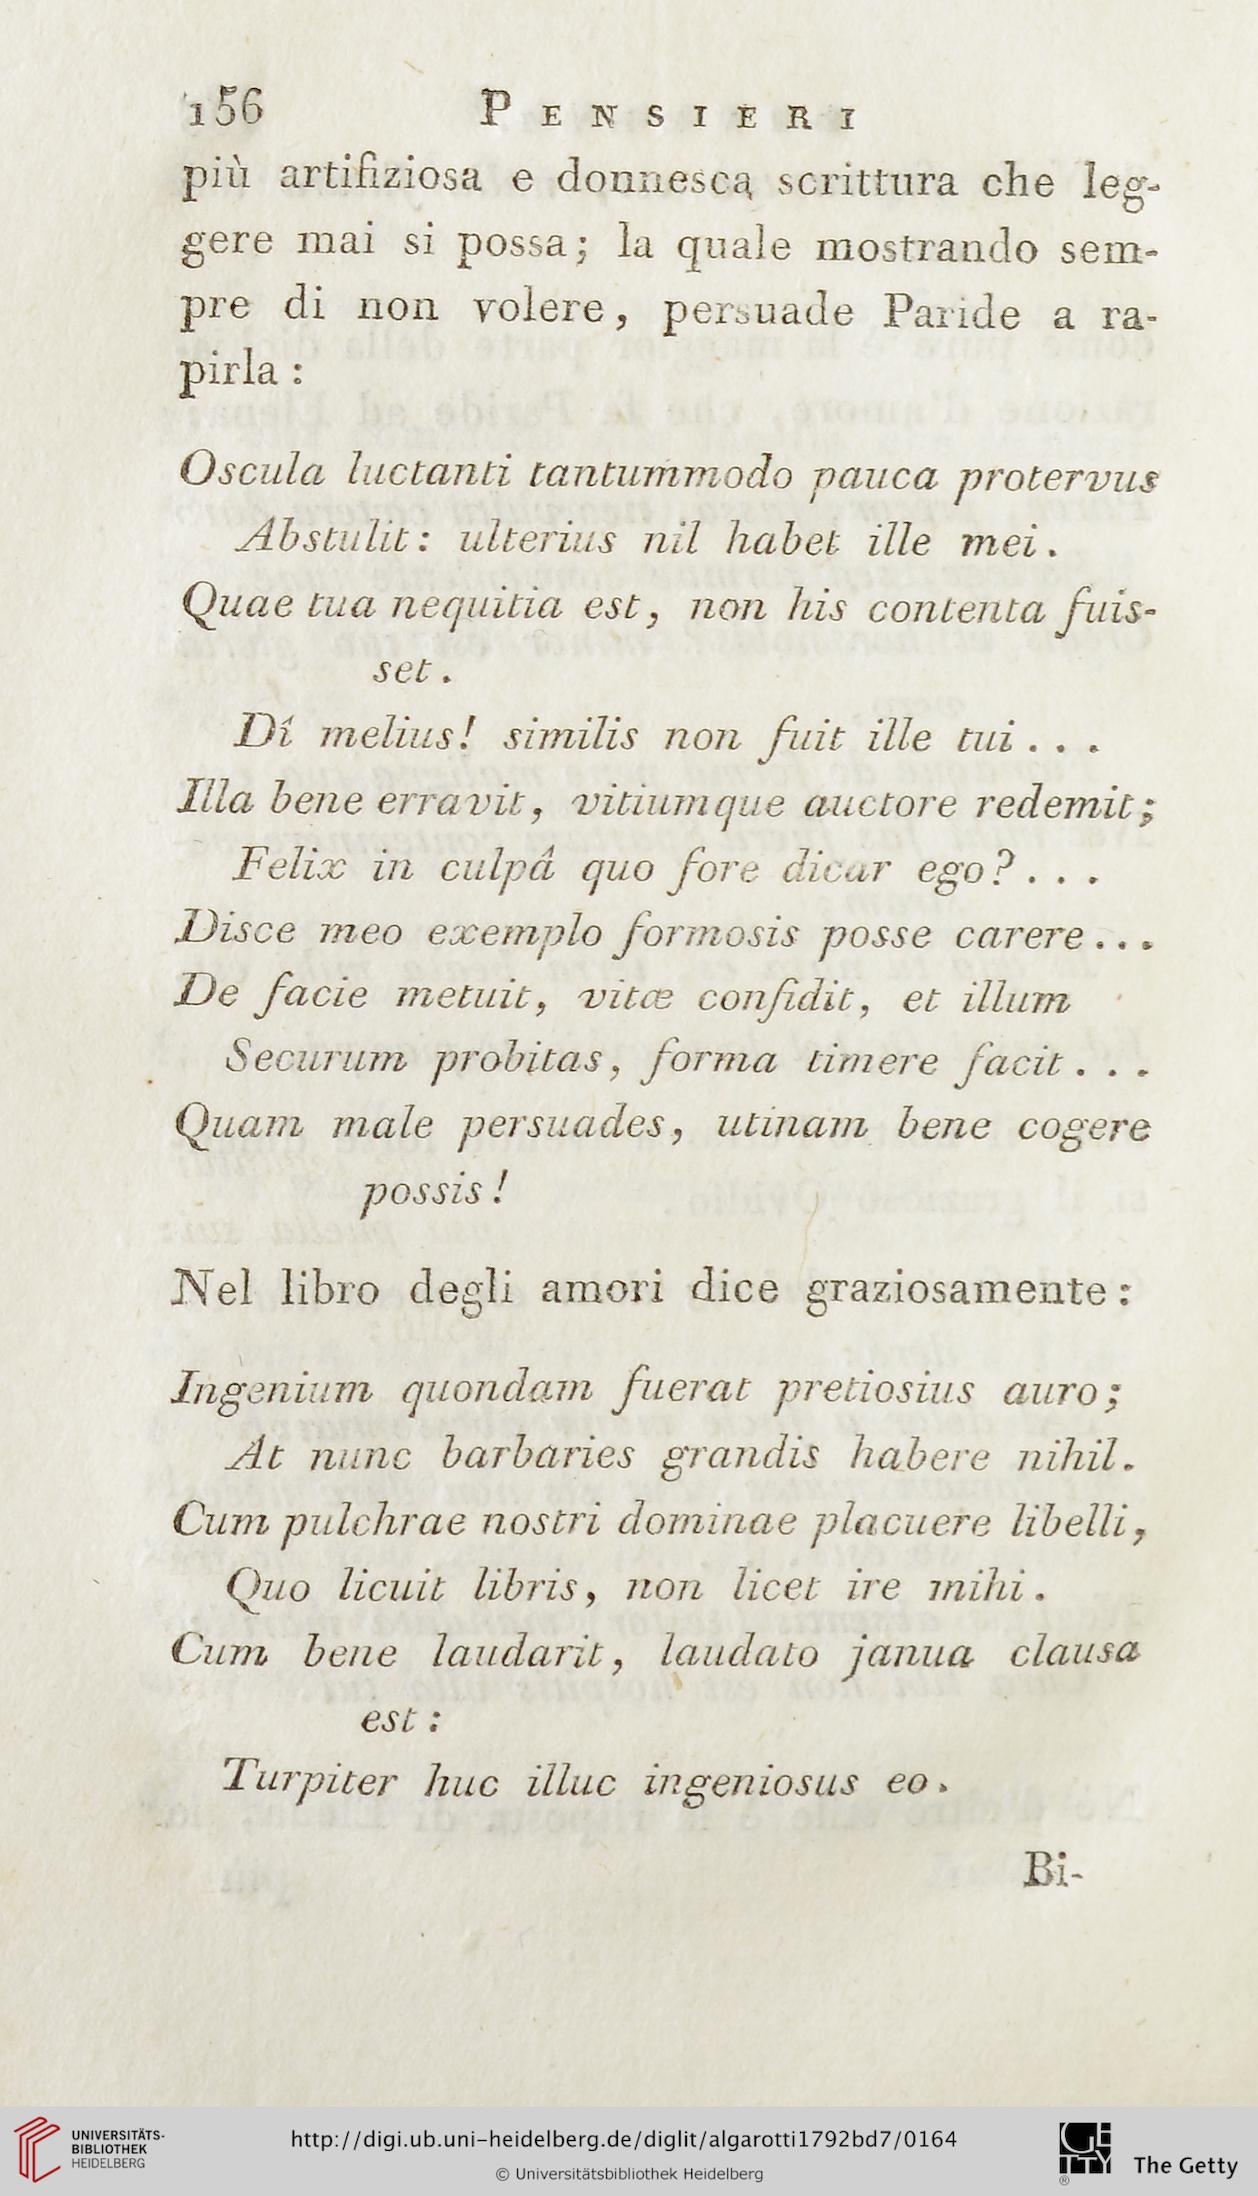 156 PENSIERI
più artifiziosa e donnesca scrittura che leg-
gere mai si possa; la quale mostrando sem-
pre di non volere, persuade Paride a ra-
pirla :
Oscula luctanti tantummodo pauca protervus
Abstulit: ulterius nil habet ille mei.
Quae tua nequitia est, non his contenta fuis-
set.
Dî melius! similis non fuit ille tui...
Illa bene erravit, vitiumque auctore redemit;
Felix in culpâ quo fore dicar ego?...
Disce meo exemplo formosis posse carere...
De facie metuit, vitæ confidit, et illum
Securum probitas, forma timere facit...
Quam male persuades, utinam bene cogere
possis!
Nel libro degli amori dice graziosamente:
Ingenium quondam fuerat pretiosius auro;
At nunc barbaries grandis habere nihil.
Cum pulchrae nostri dominae placuere libelli,
Quo licuit libris, non licet ire mihi.
Cum bene laudarit, laudato janua clausa
est:
Turpiter huc illuc ingeniosus eo.
Bi-
UNIVERSITÄTS-
BIBLIOTHEK
HEIDELBERG
http://digi.ub.uni-heidelberg.de/diglit/algarotti1792bd7/0164
© Universitätsbibliothek Heidelberg
GETTY
®
The Getty